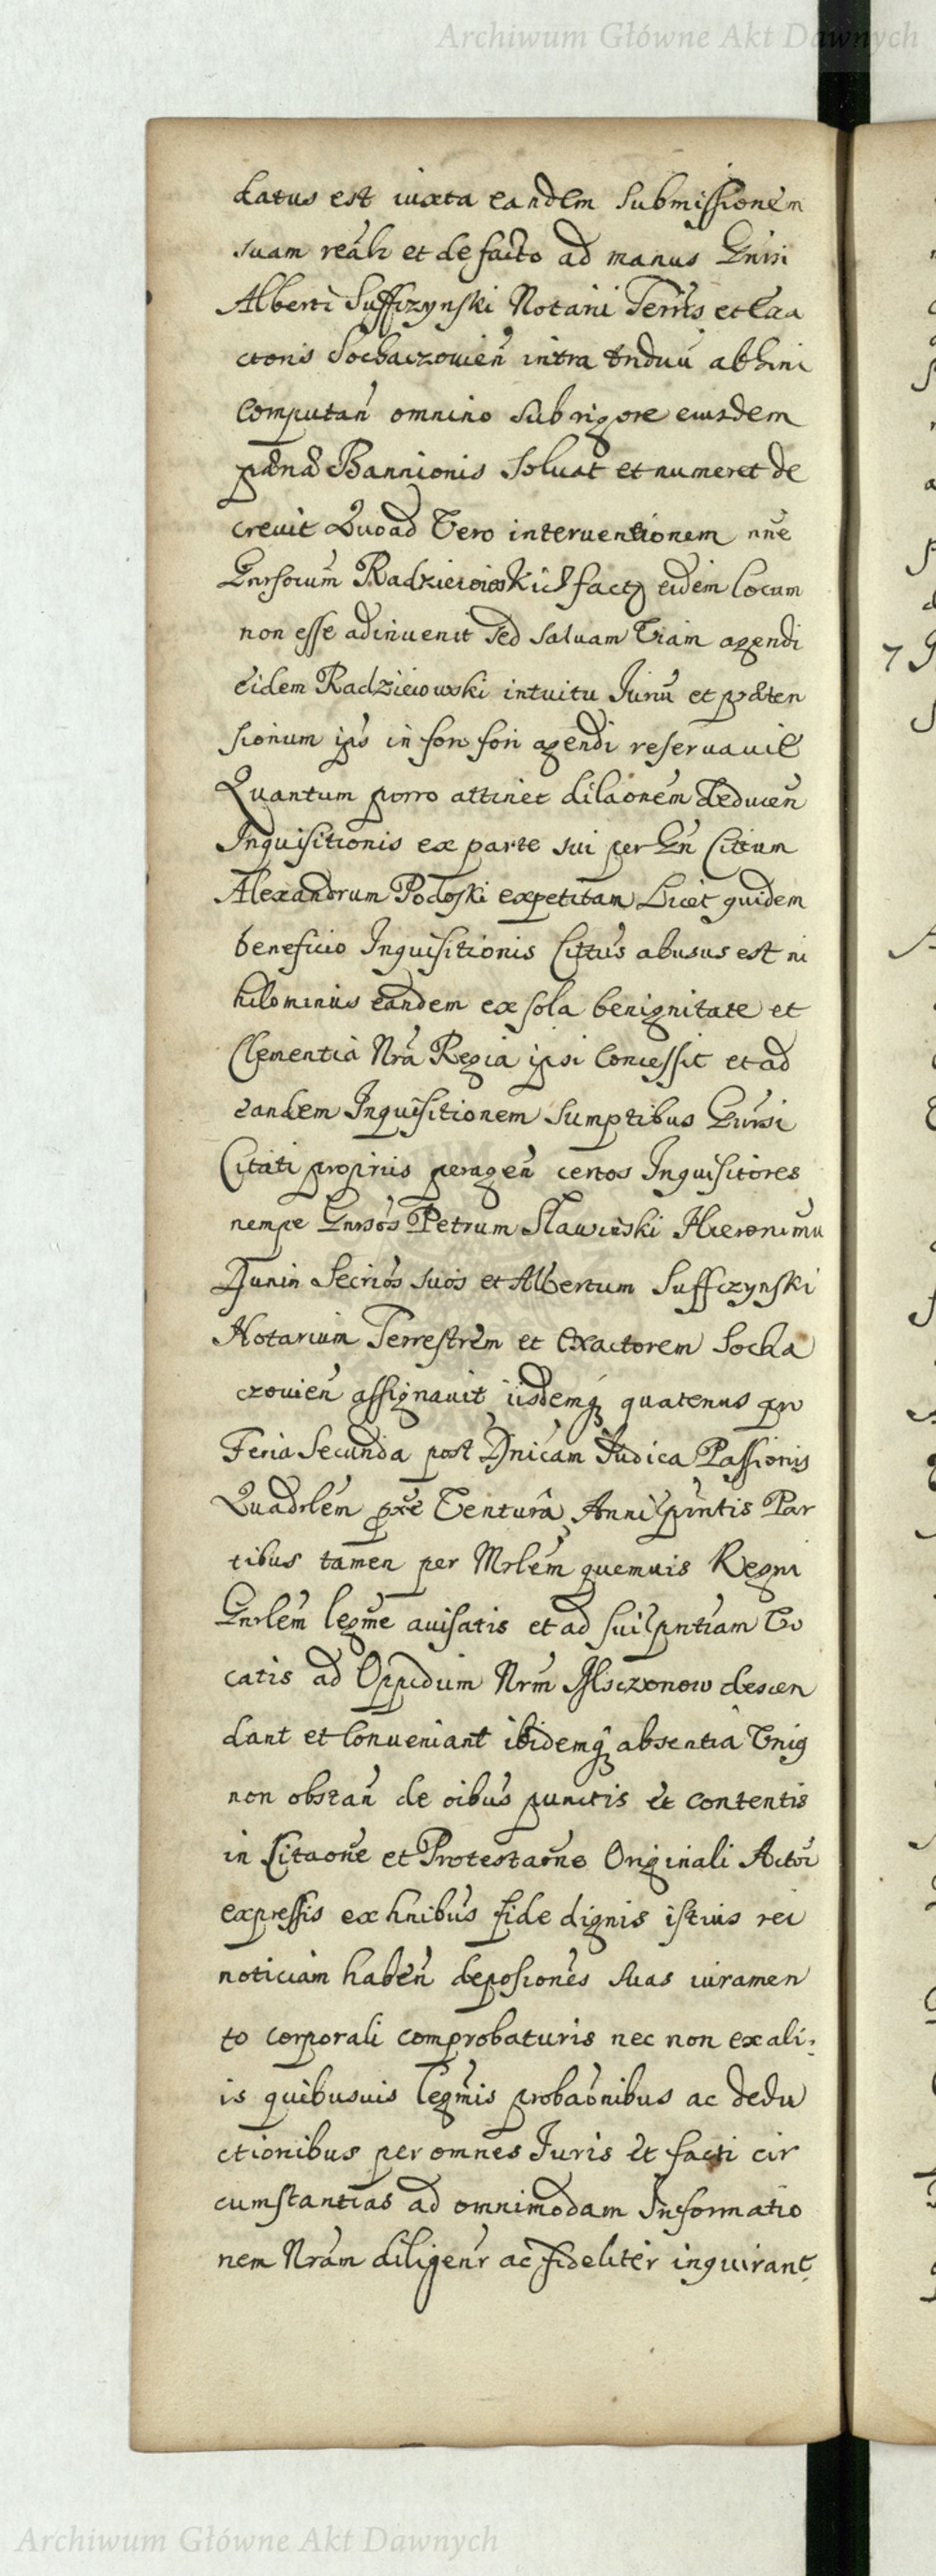 Archiwum Główne Akt Dawnych
datus est iuxta eandem submissionem
suam realr et de facto ad manus Gnsi
Alberti Suffczynski Notarii Terrs et Exa
ctoris Sochaczovien intra triduu abhinc
computan omnino sub rigore eiusdem
pænæ Bannionis solvat et numeret de
crevit Quoad Vero interventionem nne
Gnrsorum Radzieiowskich factą eidem locum
non esse adinvenit sed salvam Viam agendi
eidem Radzieiowski intuitu Juriu et præten
sionum ips in foro fori agendi reservavit
Quantum porro attinet dilaonem deducen
Inquisitionis ex parte sui per Gn Citum
Alexandrum Podoski expetitam Licet quidem
beneficio Inquisitionis Cittus abusus est ni
hilominus eandem ex sola benignitate et
Clementia Nra Regia ipsi concessit et ad
eandem Inquisitionem sumptibus Gnrsi
Citati propriis peragen certos Inquisitores
nempe Gnrsos Petrum Slawinski Hieronimu
Dunin Secrios suos et Albertum Suffczynski
Notarium Terrestrem et Exactorem Socha
czovien assignavit iisdemq quatenus pro
Feria Secunda post Dnicam Judica Passionis
Quadrlem pxe Ventura Anni pntis Par
tibus tamen per Mrlem quemvis Regni
Gnrlem legme avisatis et ad sui pntiam Vo
catis ad Oppidum Nrm Msczonow descen
dant et conveniant ibidemq absentia Vnią
non obstan de oibus punctis et contentis
in Citaone et Protestaone Originali Actor
expressis ex hnibus fide dignis istius rei
noticiam haben deposiones suas iuramen
to corporali comprobaturis nec non ex ali:
is quibusvis legmis probaonibus ac dedu
ctionibus per omnes Juris et facti cir
cumstantias ad omnimodam Informatio
nem Nram diligenr ac fideliter inquirant
Archiwum Główne Akt Dawnych